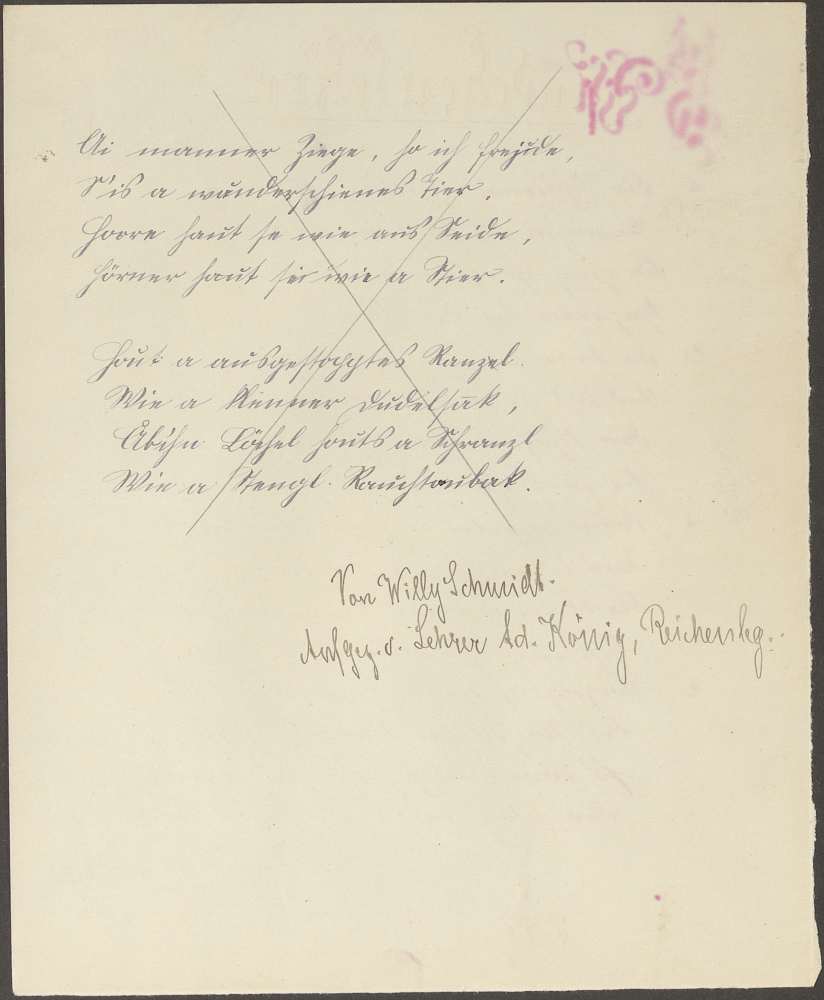 Ai manner Ziege, ho ich Frejude,
S'is a wunderschienes Tier.
Hoore haut se wie aus Seide,
Hörner haut sie wie a Stier.
Hout a ausgestopptes Ranzel.
Wie a klenner Dudelsak,
Löchel houts a Schranzl
Wie a Stengl Rauchtoubak.
Von Willy Schmidt.
Aufgez. v. Lehrer Ad. König, Reichenbg.